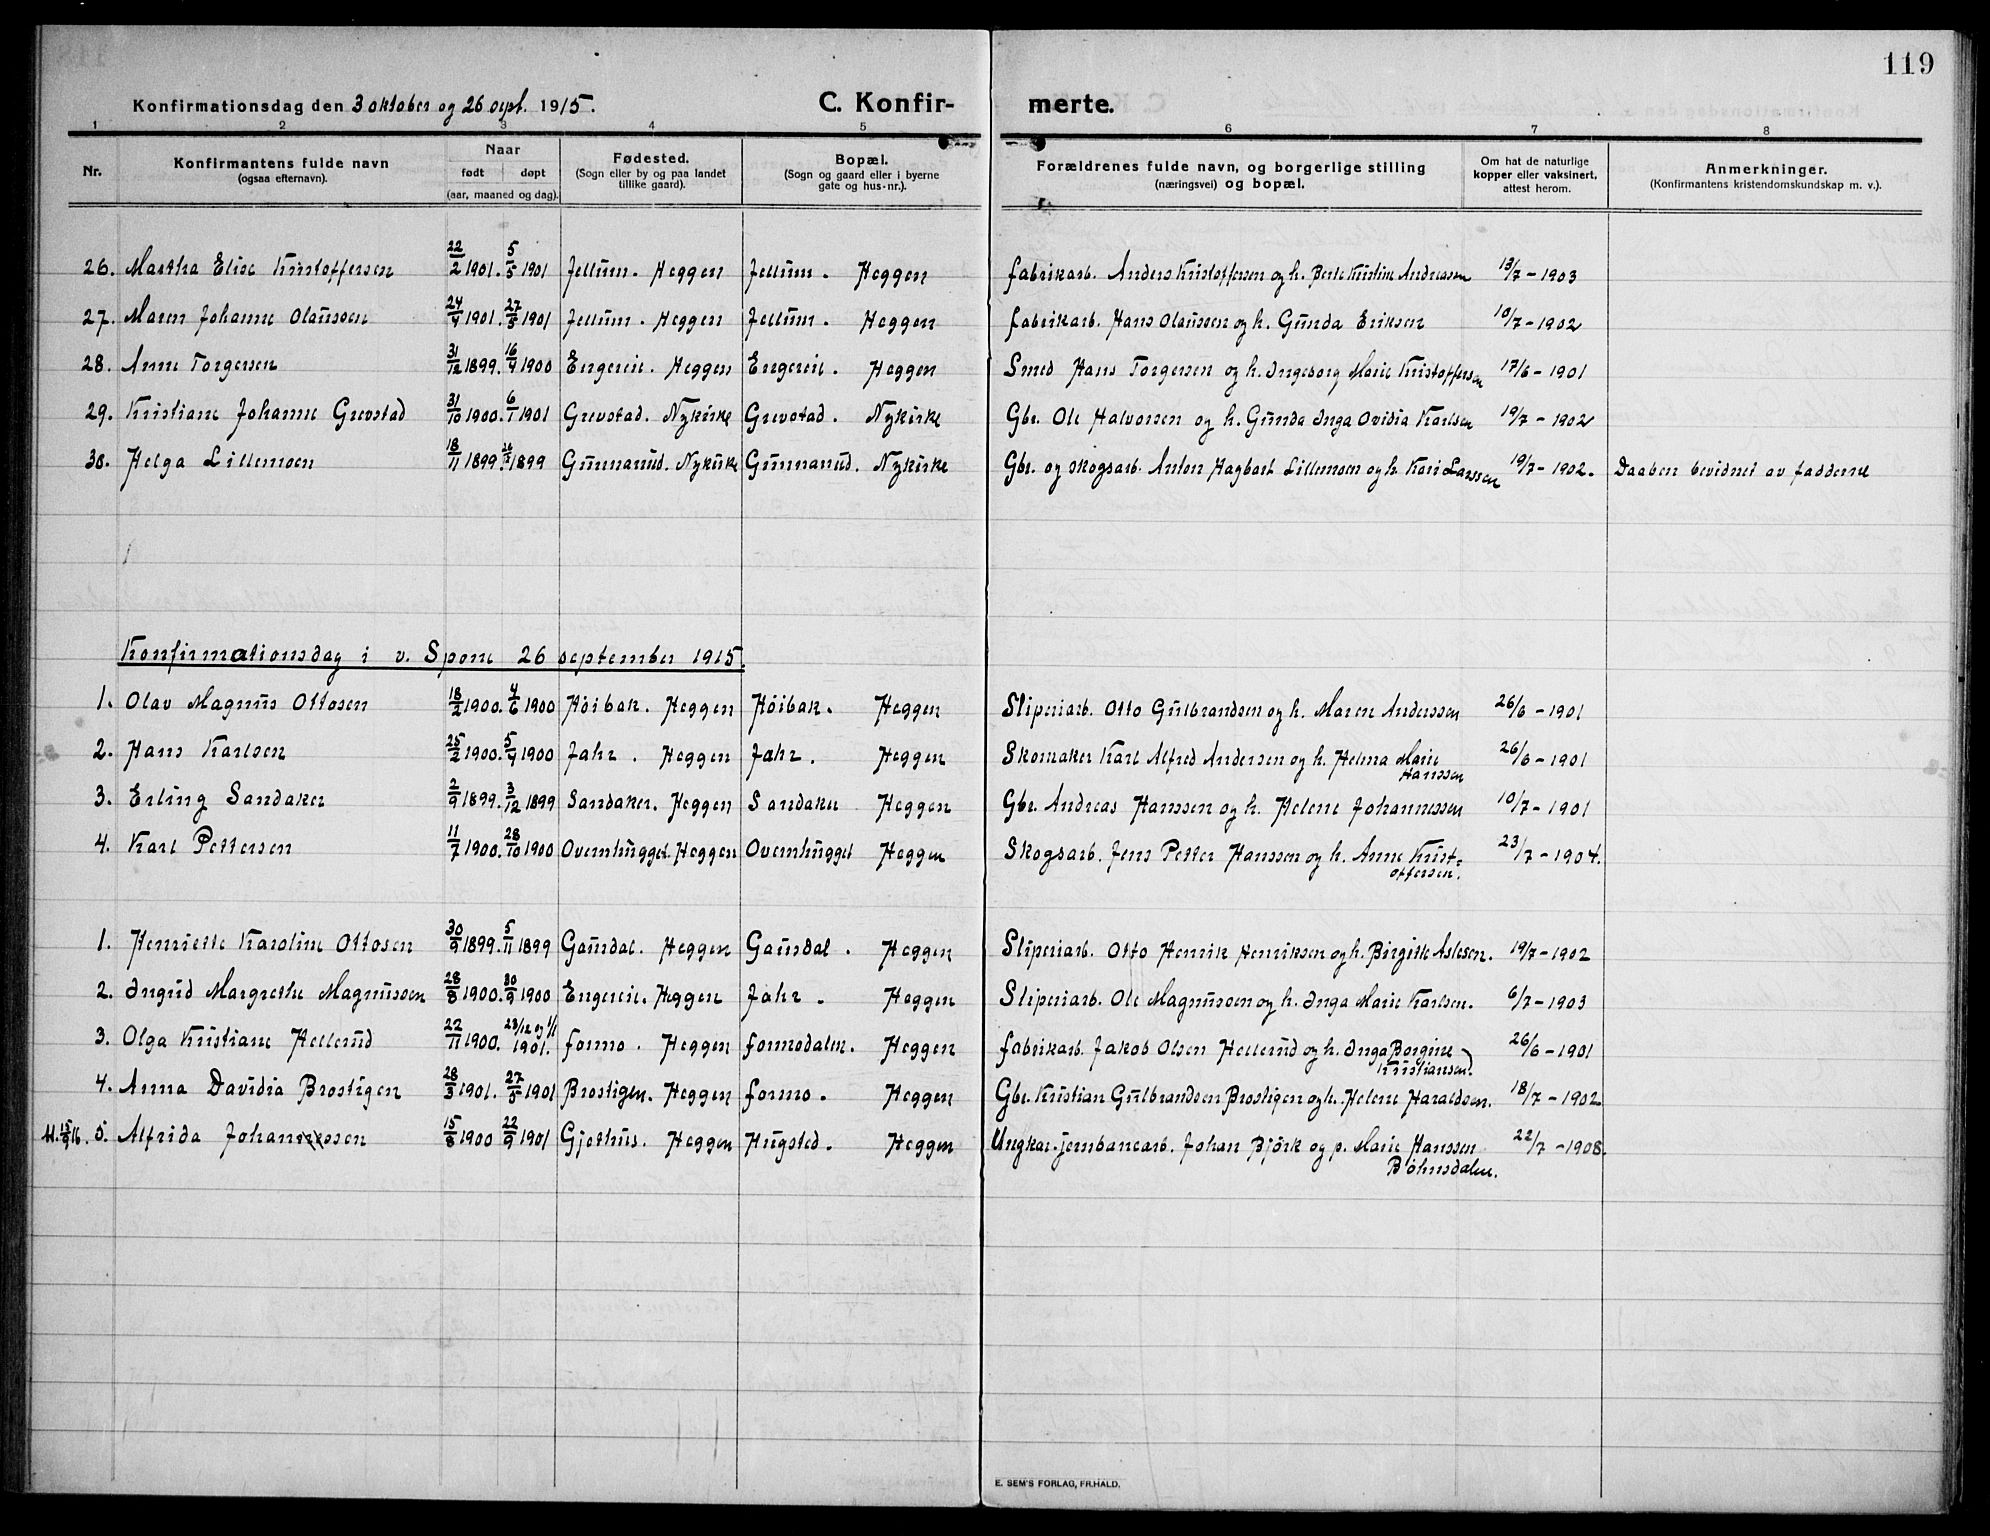 119
Konfirmationsdag den 3 oktober og 26 sept. 1915. C. Konfir- merte.
1 2 3 4 5 6 7 8
Nr. Konfirmantens fulde navn (ogsaa efternavn). Naar født døpt (aar, maaned og dag). Fødested. (Sogn eller by og paa landet tillike gaard). Bopæl. (Sogn og gaard eller i byerne gate og hus-nr.). Forældrenes fulde navn, og borgerlige stilling (næringsvei) og bopæl. Om hat de naturlige kopper eller vaksinert, attest herom. Anmerkninger. (Konfirmantens kristendomskundskap m. v.).
26. Martha Elise Kristoffersen 22/2 1901. 5/5 1901 Jellum. Heggen Jellum. Heggen fabrikarb. Anders Kristoffersen og h. Berte Kristine Andreassen 13/7 - 1903
27. Maren Johanne Olaussen 24/4 1901. 27/5 1901 Jellum. Heggen Jellum. Heggen fabrikarb. Hans Olaussen og h. Gunda Eriksen 10/7 - 1902
28. Anne Torgersen 31/12 1899. 16/4 1900 Engereie. Heggen Engereie. Heggen Smed Hans Torgersen og h. Ingeborg Marie Kristoffersen 17/6 - 1901
29. Kristiane Johanne Grevstad 31/10 1900. 6/1 1901 Grevstad. Nykirke Grevstad. Nykirke Gbr. Ole Halvorsen og h. Gunda Inga Ovidia Karlsen 19/7 - 1902
30. Helga Lillemoen 18/11 1899. 1899 Gunnarud. Nykirke Gunnarud. Nykirke Gbr. og skogsarb. Anton Hagbart Lillemoen og h. Kari Larssen 19/7 - 1902. Daaben bevidnet av fadderne
Konfirmationsdag i v. Spone 26 september 1915.
1. Olav Magnus Ottosen 18/2 1900. 4/6 1900 Høibak. Heggen Høibak. Heggen Sliperiarb. Otto Gulbrandsen og h. Maren Anderssen 26/6 - 1901
2. Hans Karlsen 25/2 1900. 5/4 1900 Jahr. Heggen Jahr. Heggen Skomaker Karl Alfred Andersen og h. Helma Marie Hanssen 26/6 - 1901
3. Erling Sandaker 2/9 1899. 3/12 1899 Sandaker. Heggen Sandaker Heggen Gbr. Andreas Hanssen og h. Helene Johannessen 10/7 - 1901
4. Karl Pettersen 11/7 1900. 28/10 1900 Ovenhugget. Heggen Ovenhugget Heggen Skogsarb. Jens Petter Hanssen og h. Anne Krist-offersen. 23/7 - 1904.
1. Henriette Karoline Ottosen 30/9 1899. 5/11 1899 Gaundal. Heggen Gaundal. Heggen Sliperiarb. Otto Henrik Henriksen og h. Birgitte Aslesen. 19/7 - 1902
2. Ingrid Margrethe Magnussen 28/8 1900. 30/9 1900 Engereie. Heggen Jahr. Heggen Sliperiarb. Ole Magnussen og h. Inga Marie Karlsen. 6/7 - 1903
3. Olga Kristiane Hellerud 22/11 1900. 23/12 og 1/1 1901. formo. Heggen formodalen. Heggen fabrikarb. Jakob Olsen Hellerud og h. Inga Borgine Kristiansen. 26/6 - 1901
4. Anna Davidia Brostigen 28/3 1901. 27/5 1901 Brostigen. Heggen formo. Heggen Gbr. Kristian Gulbrandsen Brostigen og h. Helene Haraldsen. 18/7 - 1902
5. Alfrida Johanssen 15/8 1900 22/9 1901 Gjethus. Heggen Hugsted. Heggen Ungkar. jernbanearb. Johan Björk og p. Marie Hanssen Böhnsdalen. 22/7 - 1908.
E. SEM'S FORLAG, FR.HALD.